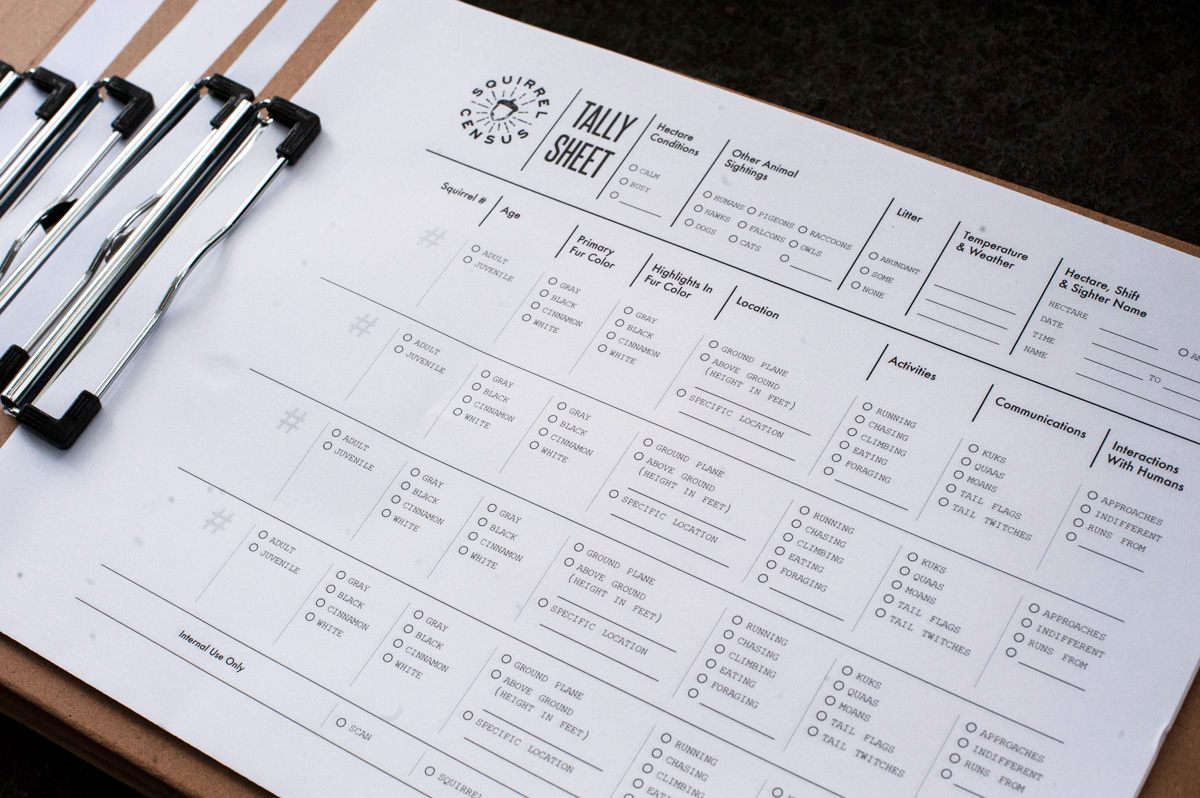 SQUIRREL CENSUS
TALLY
SHEET
Hectare
Conditions
CALM
BUSY
Other Animal
Sightings
HUMANS PIGEONS RACCOONS
HAWKS FALCONS OWLS
DOGS CATS
Litter
ABUNDANT
SOME
NONE
Temperature
& Weather
Hectare, Shift
& Sighter Name
HECTARE
DATE
TIME
TO
NAME
Squirrel #
Age
Primary
Fur Color
Highlights In
Fur Color
Location
Activities
Communications
Interactions
With Humans
#
ADULT
JUVENILE
GRAY
BLACK
CINNAMON
WHITE
GRAY
BLACK
CINNAMON
WHITE
GROUND PLANE
ABOVE GROUND
(HEIGHT IN FEET)
SPECIFIC LOCATION
RUNNING
CHASING
CLIMBING
EATING
FORAGING
KUKS
QUAAS
MOANS
TAIL FLAGS
TAIL TWITCHES
APPROACHES
INDIFFERENT
RUNS FROM
#
ADULT
JUVENILE
GRAY
BLACK
CINNAMON
WHITE
GRAY
BLACK
CINNAMON
WHITE
GROUND PLANE
ABOVE GROUND
(HEIGHT IN FEET)
SPECIFIC LOCATION
RUNNING
CHASING
CLIMBING
EATING
FORAGING
KUKS
QUAAS
MOANS
TAIL FLAGS
TAIL TWITCHES
APPROACHES
INDIFFERENT
RUNS FROM
#
ADULT
JUVENILE
GRAY
BLACK
CINNAMON
WHITE
GRAY
BLACK
CINNAMON
WHITE
GROUND PLANE
ABOVE GROUND
(HEIGHT IN FEET)
SPECIFIC LOCATION
RUNNING
CHASING
CLIMBING
EATING
FORAGING
KUKS
QUAAS
MOANS
TAIL FLAGS
TAIL TWITCHES
APPROACHES
INDIFFERENT
RUNS FROM
#
ADULT
JUVENILE
GRAY
BLACK
CINNAMON
WHITE
GRAY
BLACK
CINNAMON
WHITE
GROUND PLANE
ABOVE GROUND
(HEIGHT IN FEET)
SPECIFIC LOCATION
RUNNING
CHASING
CLIMBING
Internal Use Only
SCAN